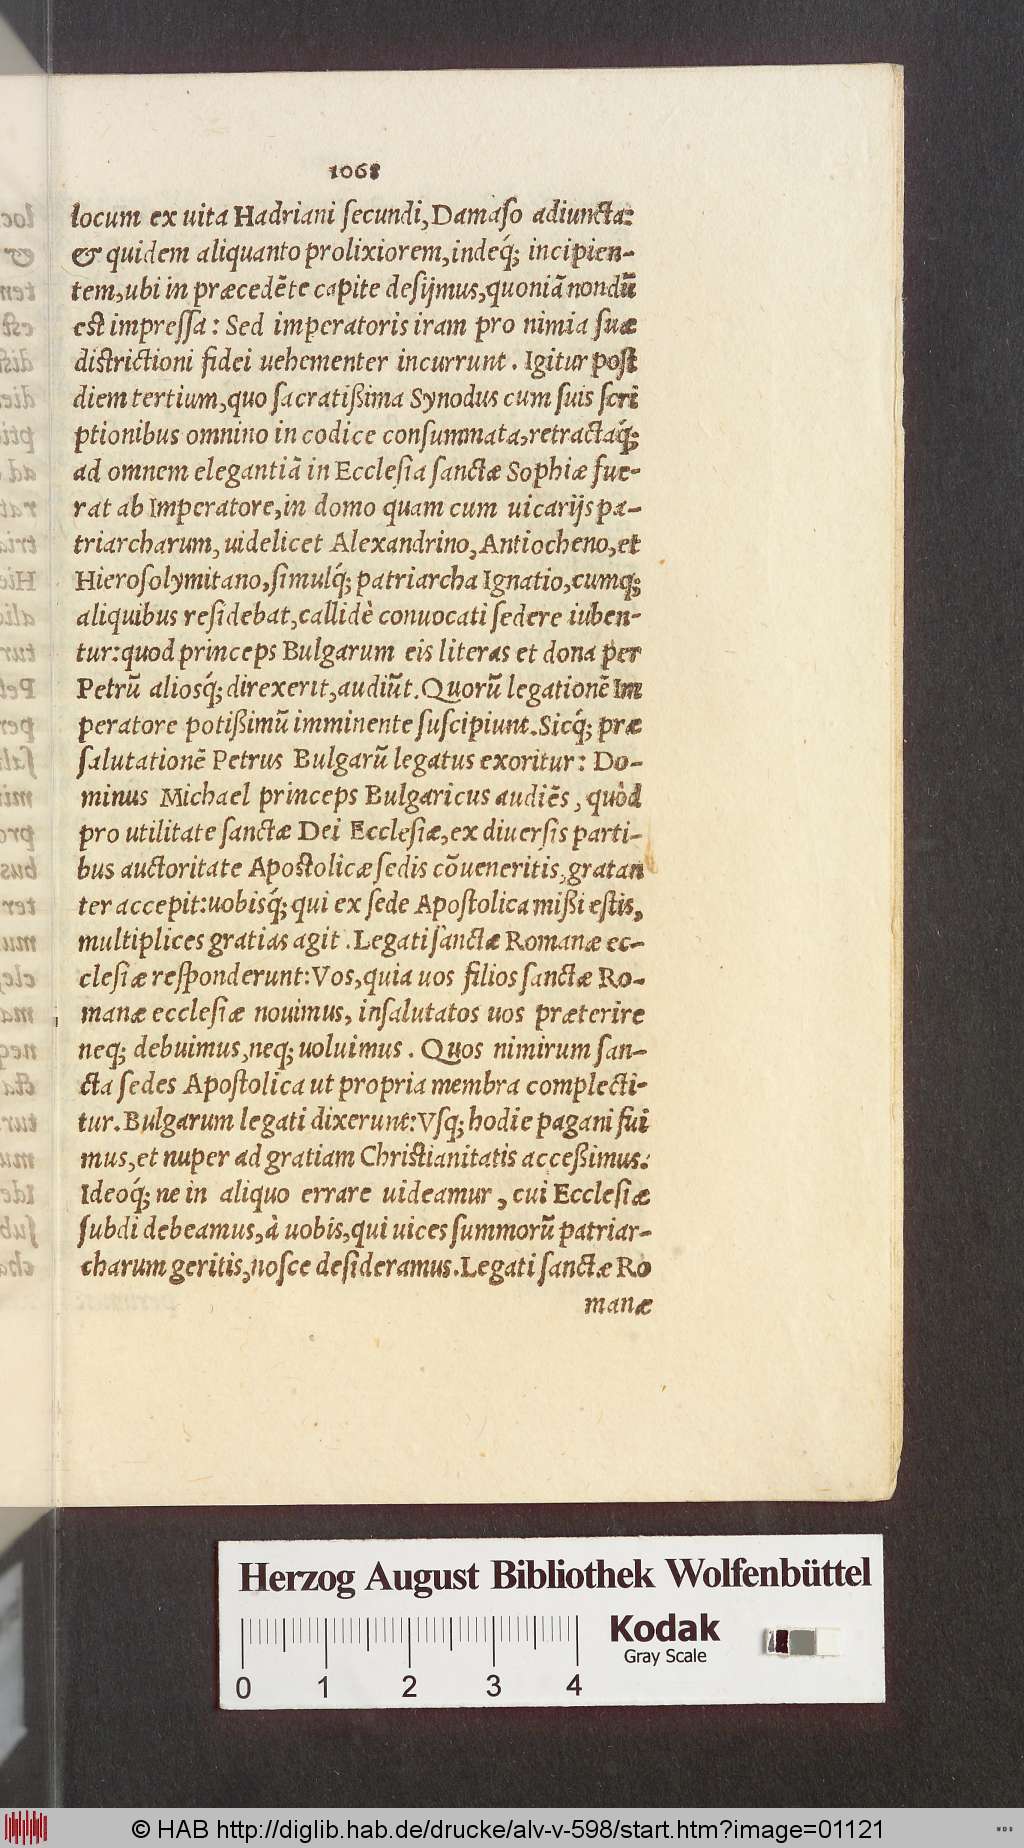 1068
locum ex uita Hadriani ſecundi, Damaſo adiuncta:
& quidem aliquanto prolixiorem, indeq́; incipien-
tem, ubi in præcedẽte capite deſijmus, quoniã nondũ
est impreſſa: Sed imperatoris iram pro nimia ſuæ
districtioni fidei uehementer incurrunt. Igitur post
diem tertium, quo ſacratißima Synodus cum ſuis ſcri
ptionibus omnino in codice conſummata, retractaq́;
ad omnem elegantiã in Eccleſia ſanctæ Sophiæ fue-
rat ab Imperatore, in domo quam cum uicarijs pa-
triarcharum, uidelicet Alexandrino, Antiocheno, et
Hieroſolymitano, ſimulq́; patriarcha Ignatio, cumq;
aliquibus reſidebat, callidè conuocati ſedere iuben-
tur: quod princeps Bulgarum eis literas et dona per
Petrũ aliosq́; direxerit, audiũt. Quorũ legationẽ Im
peratore potißimũ imminente ſuſcipiunt. Sicq́; præ
ſalutationẽ Petrus Bulgarũ legatus exoritur: Do-
minus Michael princeps Bulgaricus audiẽs, quòd
pro utilitate ſanctæ Dei Eccleſiæ, ex diuerſis parti-
bus auctoritate Apostolicæ ſedis cõueneritis, gratan
ter accepit: uobisq́; qui ex ſede Apoſtolica mißi eſtis,
multiplices gratias agit. Legati ſanctæ Romanæ ec-
cleſiæ reſponderunt: Vos, quia uos filios ſanctæ Ro-
manæ eccleſiæ nouimus, inſalutatos uos præterire
neq; debuimus, neq; uoluimus. Quos nimirum ſan-
cta ſedes Apoſtolica ut propria membra complecti-
tur. Bulgarum legati dixerunt: Vſq; hodie pagani fui
mus, et nuper ad gratiam Christianitatis acceßimus:
Ideoq́; ne in aliquo errare uideamur, cui Eccleſiæ
ſubdi debeamus, à uobis, qui uices ſummorũ patriar-
charum geritis, noſce deſideramus. Legati ſanctæ Ro
manæ
Herzog August Bibliothek Wolfenbüttel
Kodak
Gray Scale
0 1 2 3 4
© HAB http://diglib.hab.de/drucke/alv-v-598/start.htm?image=01121